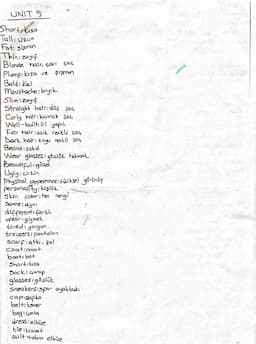 UNIT 5
Short: kısa
Tall: uzun
Fat: şişman
Thin: zayıf
Blonde hair: sarı saç
Plump: kısa ve şişman
Bald: Kel
Moustache: bıyık
Slim: zayıf
Straight hair: düz saç
Curly hair: kıvırcık saç
Well-built: iri yapılı
Fair hair: açık renkli saç
Dark hair: koyu renkli saç
Beard: sakal
Wear glasses: gözlük takmak
Beautiful: güzel
Ugly: çirkin
Physical appearance: fiziksel görünüş
personality: kişilik
Skin color: ten rengi
Same: aynı
different: farklı
wear: giymek
tired: yorgun
trousers: pantolon
scarf: atkı, şal
coat: mont
boot: bot
Short: kısa
Sock: çorap
glasses: gözlük
sneakers: spor ayakkabı
cap: şapka
belt: kemer
bag: çanta
dress: elbise
tie: kravat
suit: takım elbise